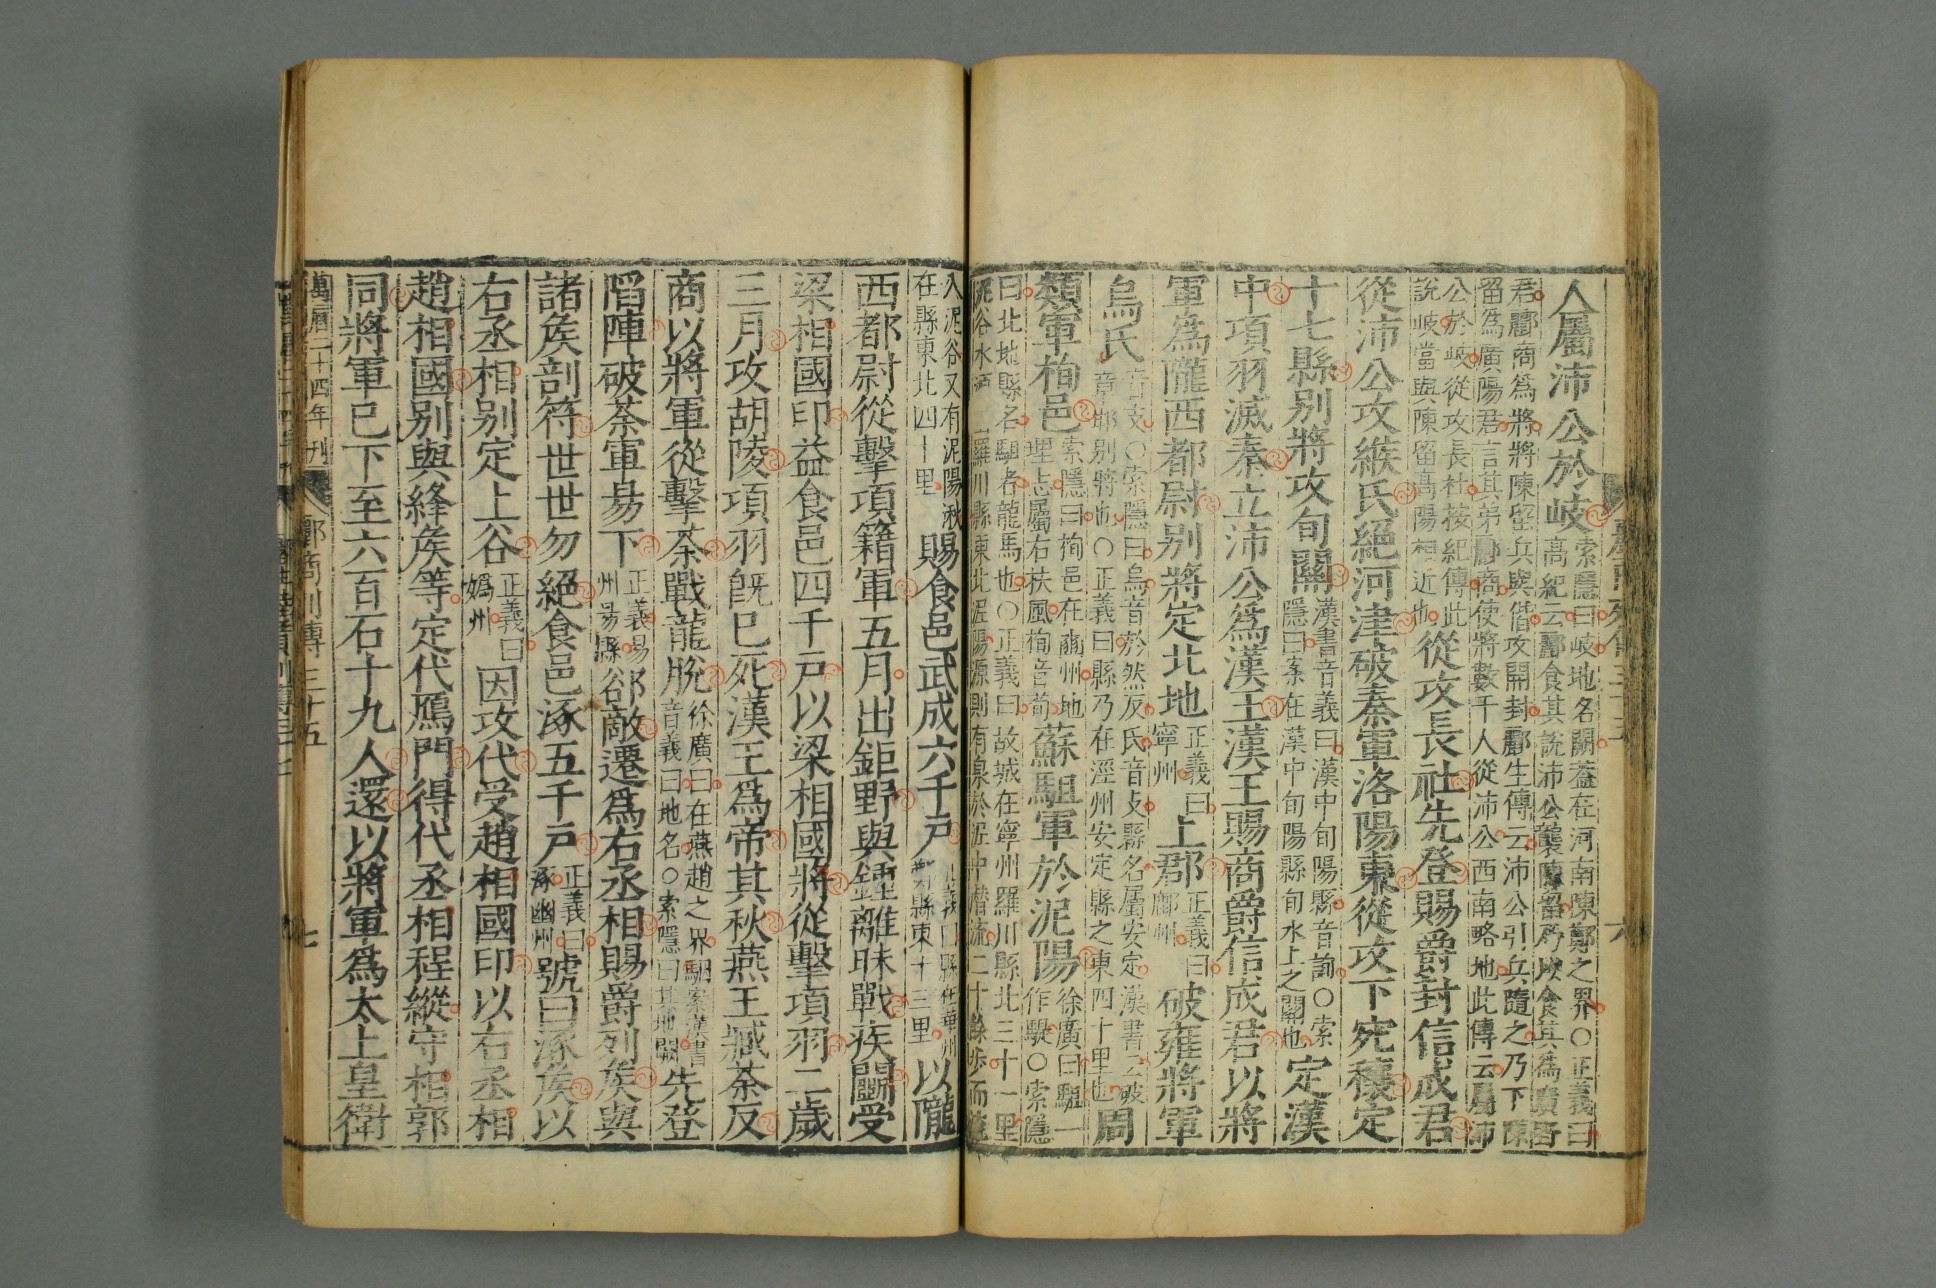 人屬沛公於岐索隱曰岐地名闕蓋在河南陳鄭之界○正義曰高紀云酈食其說沛公襲陳留乃以食其為廣野
君酈商為將將陳留兵與偕攻開封酈生傳云沛公引兵隨之乃下陳
留為廣陽君言其弟酈商使將數千人從沛公西南略地此傳云屬沛
公於岐從攻長社按紀傳此說岐當與陳留高陽相近也從攻長社先登賜爵封信成君
從沛公攻緱氏絕河津破秦軍洛陽東從攻下宛穰定
十七縣別將攻旬關漢書音義曰漢中旬陽縣音詢○索隱曰案在漢中旬陽縣旬水上之關也定漢
中項羽滅秦立沛公為漢王漢王賜商爵信成君以將
軍為隴西都尉別將定北地正義曰寧州上郡正義曰鄜州破雍將軍
烏氏音支○索隱曰烏音於然反氏音支縣名屬安定漢書云破章邯別將也○正義曰縣乃在涇州安定縣之東四十里也周
類軍栒邑索隱曰栒邑在豳州地理志屬右扶風栒音荀蘇駔軍於泥陽徐廣曰駔一作騠○索隱
曰北地縣名駔者龍馬也○正義曰故城在寧州羅川縣北三十一里
泥谷水源羅川縣東北泥陽源則有泉於泥中潛流二十餘步而流
入泥谷又有泥陽湫在縣東北四十里賜食邑武成六千戶正義曰縣在華州鄭縣東十三里以隴
西都尉從擊項籍軍五月出鉅野與鍾離眛戰疾鬬受
梁相國印益食邑四千戶以梁相國將從擊項羽二歲
三月攻胡陵項羽既已死漢王為帝其秋燕王臧荼反
商以將軍從擊荼戰龍脫徐廣曰在燕趙之界駰案漢書音義曰地名○索隱曰其地闕先登
陷陣破荼軍易下正義易州易縣郤敵遷為右丞相賜爵列矦與
諸矦剖符世世勿絕食邑涿五千戶正義曰涿幽州號曰涿矦以
右丞相別定上谷正義曰媯州因攻代受趙相國印以右丞相
趙相國別與絳矦等定代鴈門得代丞相程縱守相郭
同將軍已下至六百石十九人還以將軍為太上皇衛
萬曆二十四年刊 酈商列傳三十五 七